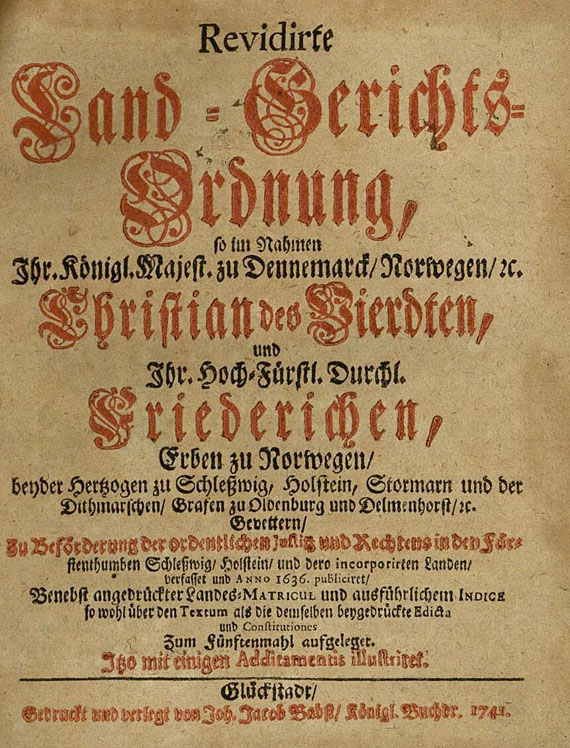 Revidirte
Land-Gerichts-
Ordnung,
so im Nahmen
Ihr. Königl. Majest. zu Dennemarck/ Norwegen/ ꝛc.
Christian des Vierdten,
und
Ihr. Hoch-Fürstl. Durchl.
Friederichen,
Erben zu Norwegen/
beyder Hertzogen zu Schleßwig, Holstein, Stormarn und der
Dithmarschen/ Grafen zu Oldenburg und Delmenhorst/ ꝛc.
Gevettern/
Zu Beförderung der ordentlichen Justitz und Rechtens in den Für-
stenthumben Schleßwig/ Holstein/ und dero incorporirten Landen/
verfasset und ANNO 1636. publiciret/
Benebst angedrückter Landes-MATRICUL und ausführlichem INDICE
so wohl über den Textum als die demselben beygedrückte Edicta
und Constitutiones
Zum Fünftenmahl aufgeleget.
Itzo mit einigen Additamentis illustriret.
Glückstadt/
Gedruckt und verlegt von Joh. Jacob Babst/ Königl. Buchdr. 1741.